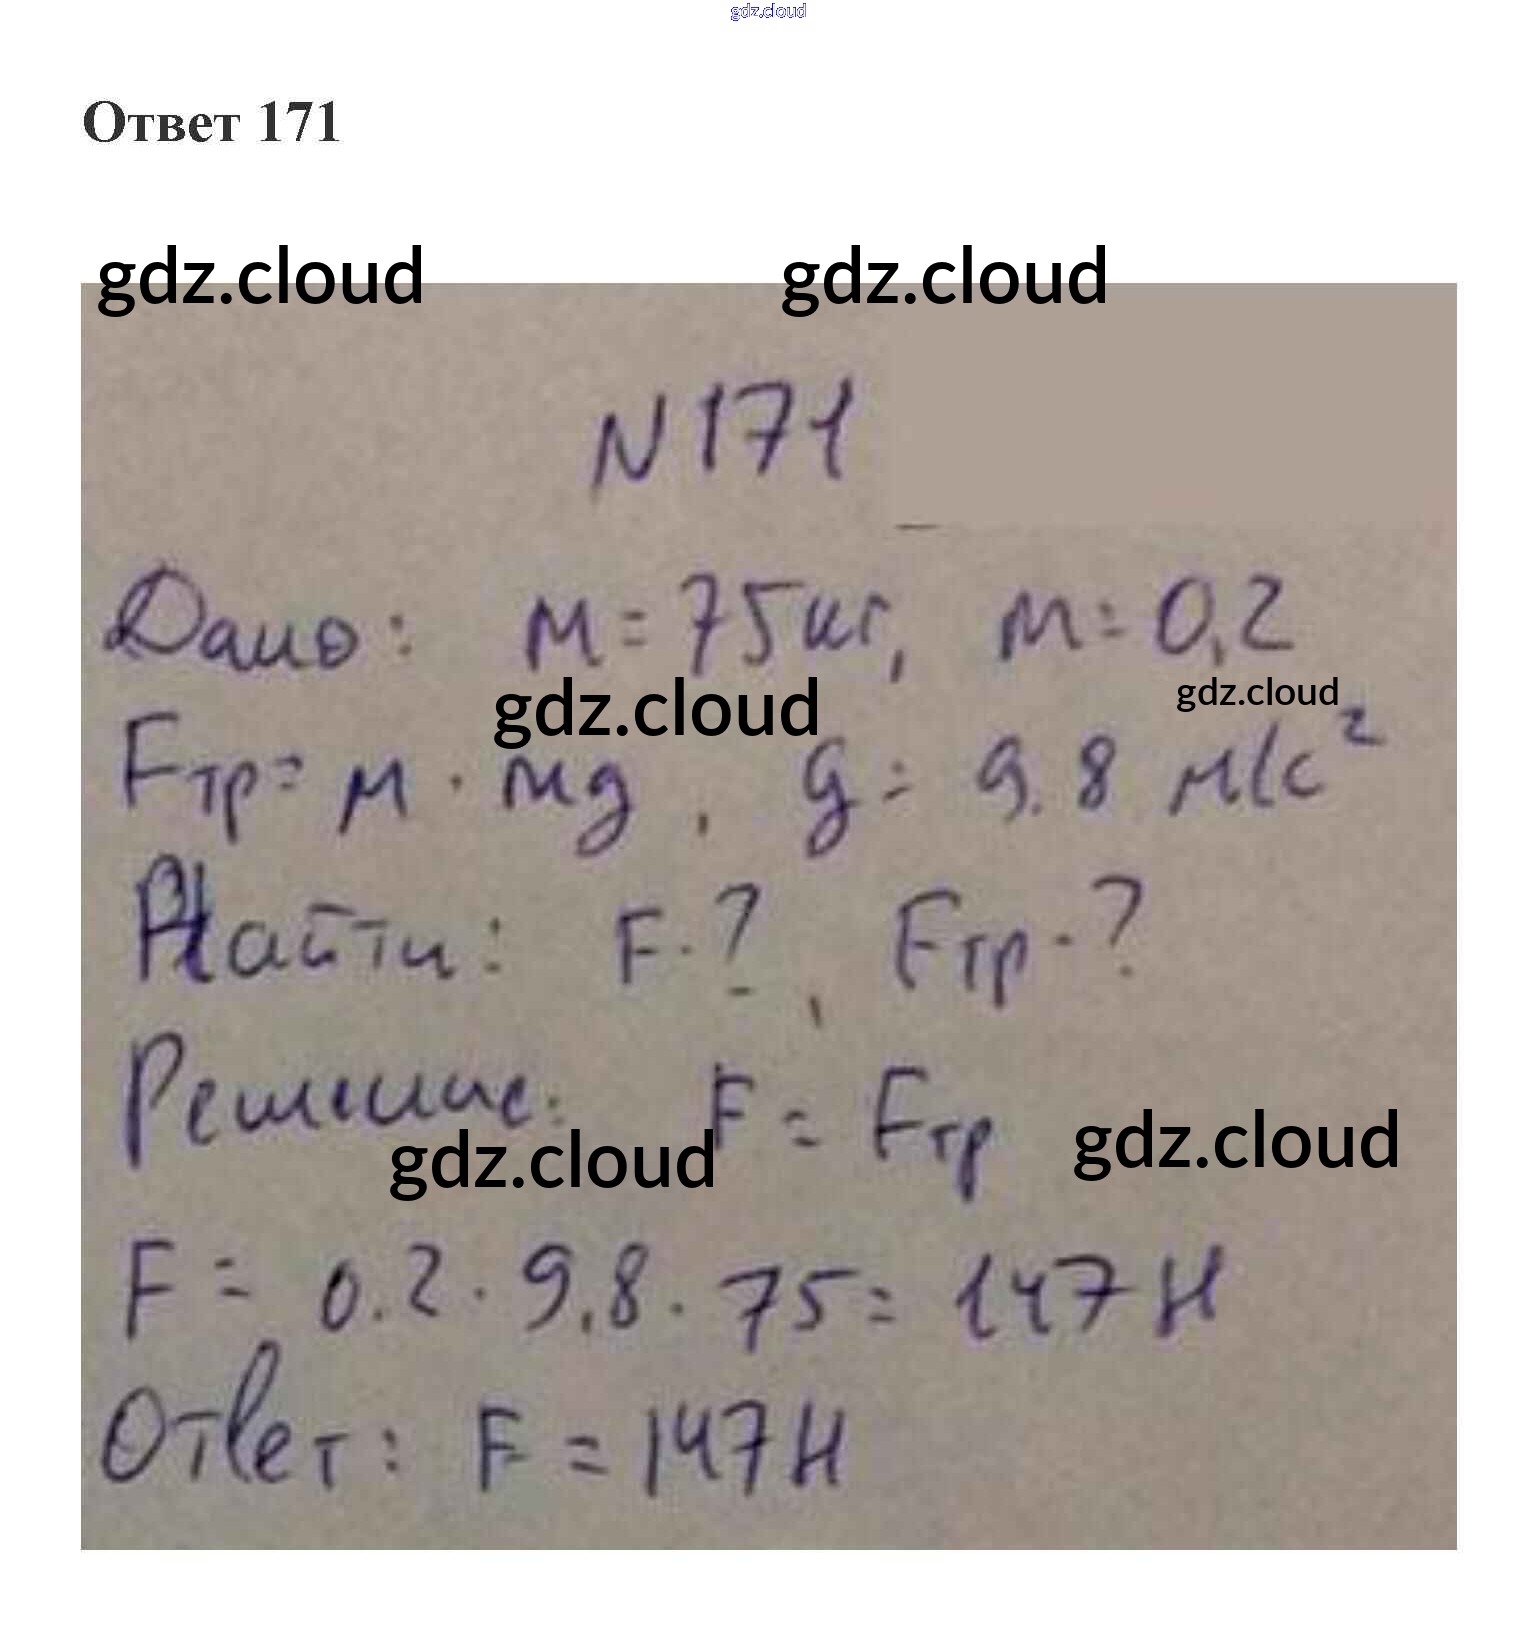 gdz.cloud
Ответ 171
gdz.cloud gdz.cloud
N 171
Дано: м = 75 кг, м = 0,2
gdz.cloud gdz.cloud
Fтр = μ · mg, g = 9.8 м/с²
Найти: F-?, Fтр-?
Решение: F = Fтр
gdz.cloud gdz.cloud
F = 0.2 · 9,8 · 75 = 147 Н
Ответ: F = 147 Н